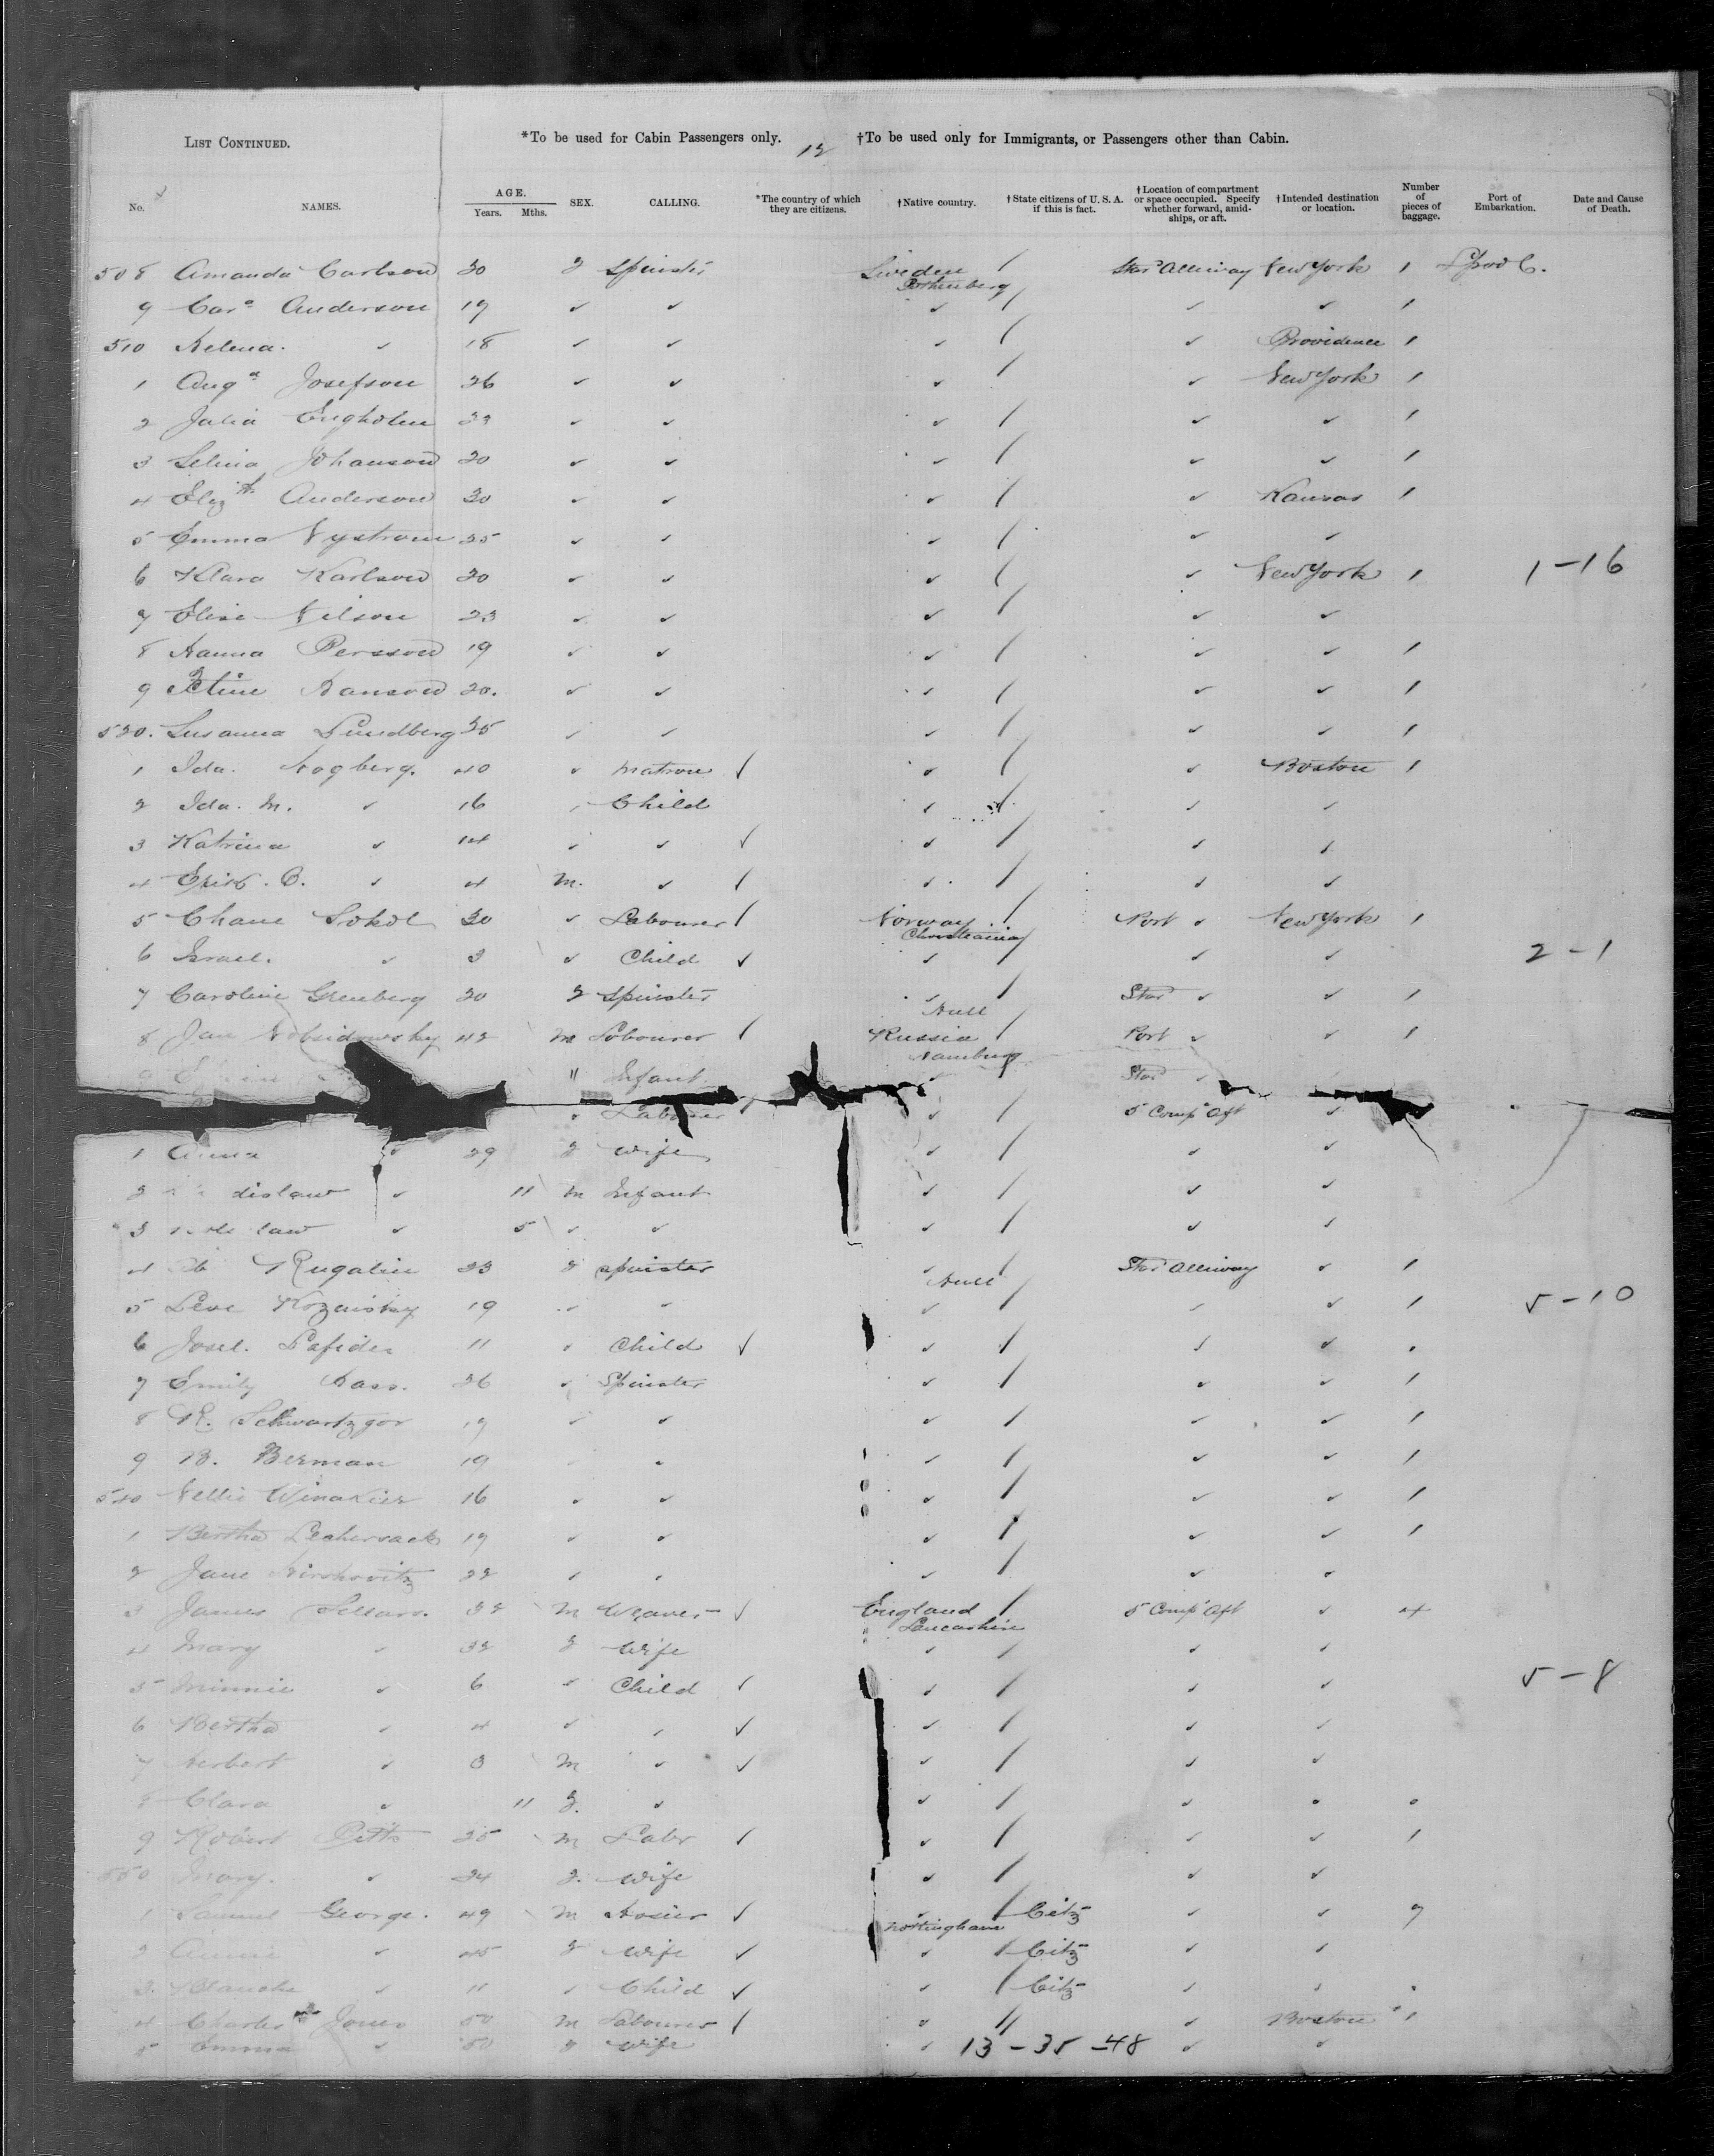 LIST CONTINUED. *To be used for Cabin Passengers only. 12 †To be used only for Immigrants, or Passengers other than Cabin.
No. NAMES. AGE. Years. Mths. SEX. CALLING. *The country of which they are citizens. †Native country. †State citizens of U. S. A. if this is fact. †Location of compartment or space occupied. Specify whether forward, amidships, or aft. †Intended destination or location. Number of pieces of baggage. Port of Embarkation. Date and Cause of Death.
508 Amanda Carlson 30 Spinster Sweden / Star Alleiway New York 1 L'pool
9 Car Anderson 19 ✓ ✓ ✓ / ✓ ✓ 1
510 Helena. ✓ 18 ✓ ✓ ✓ / ✓ Providence 1
1 Aug Josefson 26 ✓ ✓ ✓ / ✓ New York 1
2 Julia Engholm ✓ ✓ ✓ / ✓ ✓ 1
3 Selina Johanson 20 ✓ ✓ ✓ / ✓ ✓ 1
4 Elizth Anderson 30 ✓ ✓ ✓ / ✓ Kansas 1
5 Emma Nystrom 25 ✓ ✓ ✓ / ✓ ✓
6 Klara Karlson 20 ✓ ✓ ✓ / ✓ New York 1 1-16
7 Elise Nilson 23 ✓ ✓ ✓ / ✓ ✓
8 Hanna Persson 19 ✓ ✓ ✓ / ✓ ✓ 1
9 Stine Hanson 20. ✓ ✓ ✓ / ✓ ✓ 1
520. Susanna Lundberg 25 ✓ ✓ ✓ / ✓ ✓ 1
1 Ida. Hogberg. 40 ✓ Matron ✓ / ✓ Boston 1
2 Ida. M. ✓ 16 Child ✓ / ✓ ✓
3 Katrina ✓ 14 ✓ ✓ ✓ / ✓ ✓
4 ✓ 4 M. ✓ ✓ / ✓ ✓
5 Chane Sokol 30 ✓ Labourer / Norway Christiania / Port ✓ New York 1
6 Israel. ✓ 3 ✓ Child ✓ ✓ / ✓ ✓ 2-1
7 Caroline Grenberg 20 Spinster ✓ Hull / Star ✓ ✓ 1
8 Jan 42 M Labourer / Russia Hamburg / Port ✓ ✓ 1
" Infant ✓ Star ✓
✓ Labourer ✓ / 5 Comp Aft ✓
1 Anna ✓ 29 Wife ✓ / ✓ ✓
2 dislaw ✓ 11 M Infant ✓ / ✓ ✓
3 law ✓ 5 ✓ ✓ ✓ / ✓ ✓
4 Rugalin 23 Spinster ✓ Hull / Star Alleiway ✓ 1
5 Leve 19 ✓ ✓ ✓ / ✓ ✓ 1 5-10
6 Josel. Lafider 11 ✓ Child ✓ ✓ / ✓ ✓
7 Emily Hass. 26 ✓ Spinster ✓ / ✓ ✓ 1
8 R. 19 ✓ ✓ ✓ / ✓ ✓ 1
9 B. Berman 19 ✓ / ✓ ✓ 1
540 Nellie 16 ✓ ✓ ✓ / ✓ ✓ 1
1 Bertha 19 ✓ ✓ ✓ / ✓ ✓ 1
2 Jane Hirshovitz 22 ✓ ✓ ✓ / ✓ ✓
3 James Sellars. 32 M Weaver ✓ England Lancashire / 5 Comp Aft ✓ 4
4 Mary ✓ 32 Wife ✓ / ✓ ✓
5 Minnie ✓ 6 ✓ Child ✓ ✓ / ✓ ✓ 5-8
6 Bertha ✓ 4 ✓ ✓ ✓ / ✓ ✓
7 Herbert ✓ 3 M ✓ ✓ ✓ / ✓ ✓
8 Clara ✓ 11 ✓ ✓ / ✓
9 Robert Pitts 25 M Labr / ✓ / ✓ ✓ 1
550 Mary. ✓ 24 Wife ✓ / ✓ ✓
1 Samuel George. 49 M Hosier ✓ Nottingham / Citz ✓ ✓ 7
2 Annie ✓ 45 Wife ✓ ✓ / Citz ✓ ✓
3. Blanche ✓ 11 Child ✓ ✓ / Citz ✓ ✓
4 Charles Jones 50 M Labourer / ✓ // ✓ Boston 1
5 Emma ✓ 50 Wife ✓ 13-35-48 ✓ ✓